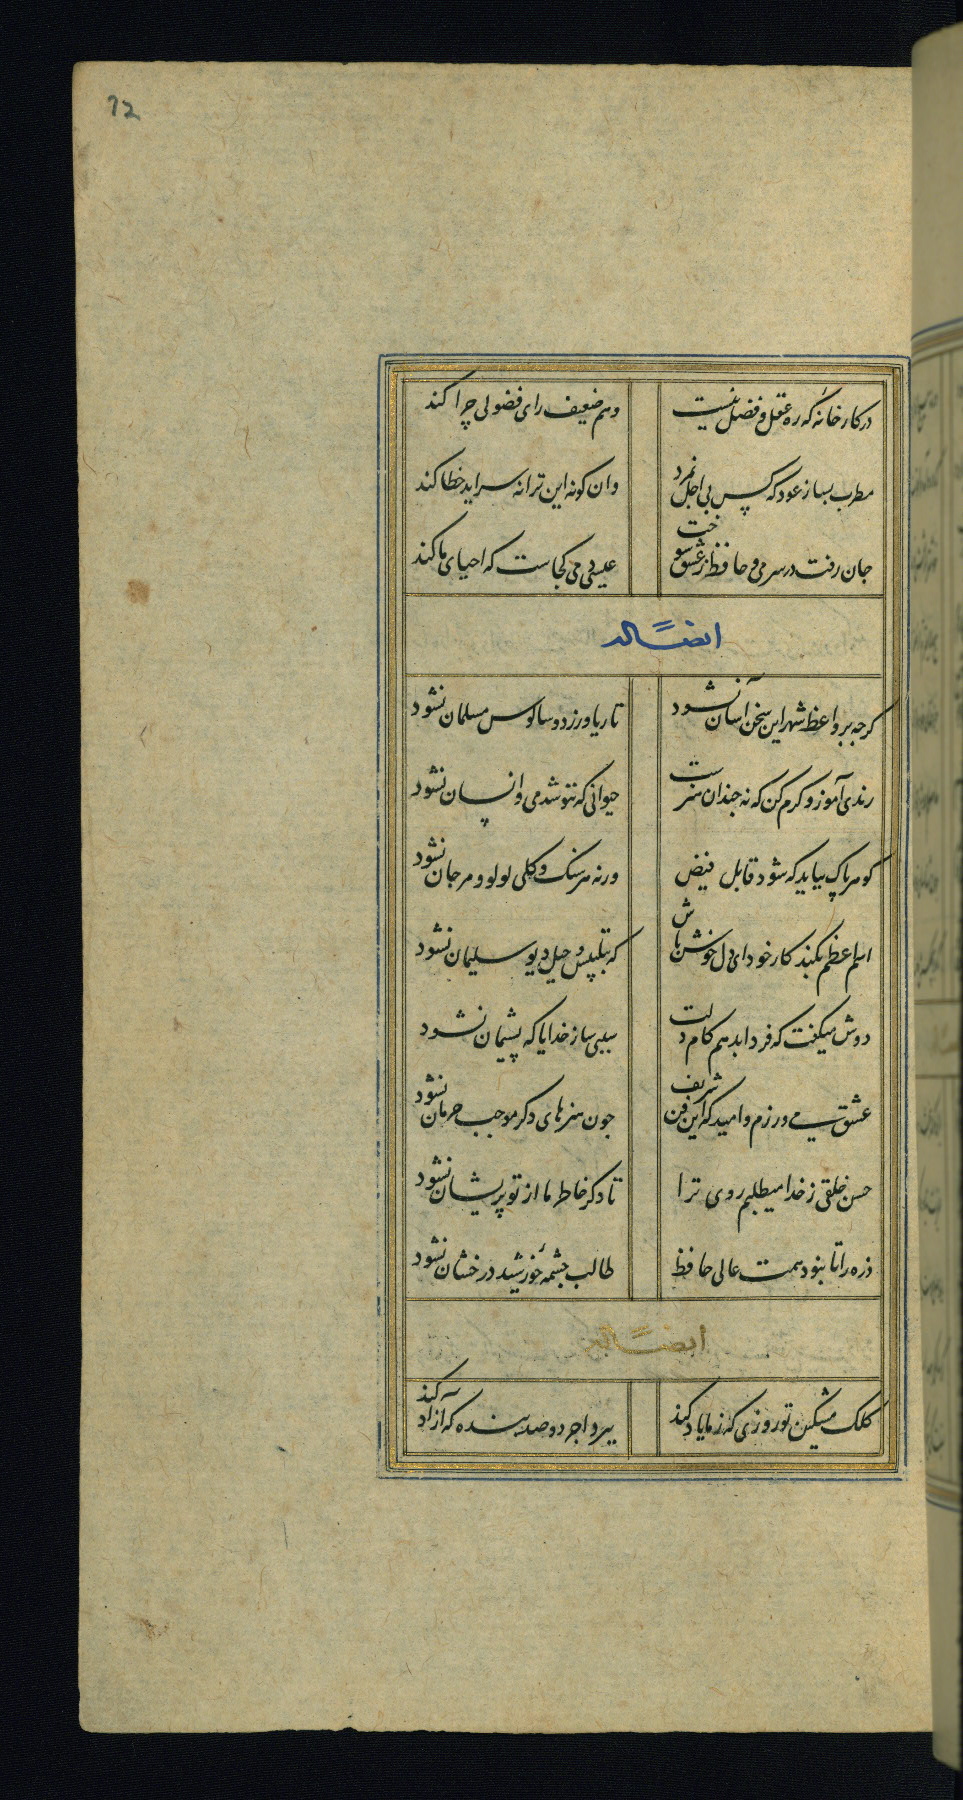 72
درکارخانهٔ که ره عقل و فضل نیست وهم ضعیف رای فضولی چرا کند
مطرب بساز عود که کس بی اجل نمرد وان کونه این ترانه سراید خطا کند
جان رفت در سر می و حافظ ز عشق سوخت عیسی دمی کجاست که احیای ما کند
ایضاً له
کرچه بر واعظ شهر این سخن آسان نشود تا ریا ورزد و سالوس مسلمان نشود
رندی آموز و کرم کن که نه جندان هنرست حیوانی که ننوشد می و انسان نشود
کوهر پاک بباید که شود قابل فیض ورنه هر سنک و کلی لولو و مرجان نشود
اسم اعظم بکند کار خود ای دل خوش باش که بتلبیس و حیل دیو سلیمان نشود
دوش میکفت که فردا بدهم کام دلت سببی ساز خدایا که پشیمان نشود
عشق می ورزم و امید که این فن شریف جون هنرهای دکر موجب حرمان نشود
حسن خلقی ز خدا میطلبم روی ترا تا دکر خاطر ما از تو پریشان نشود
ذره را تا نبود همت عالی حافظ طالب جشمهٔ خورشید درخشان نشود
ایضاً له
کلک مشکین تو روزی که ز ما یاد کند ببرد اجر دو صد بنده که آزاد کند